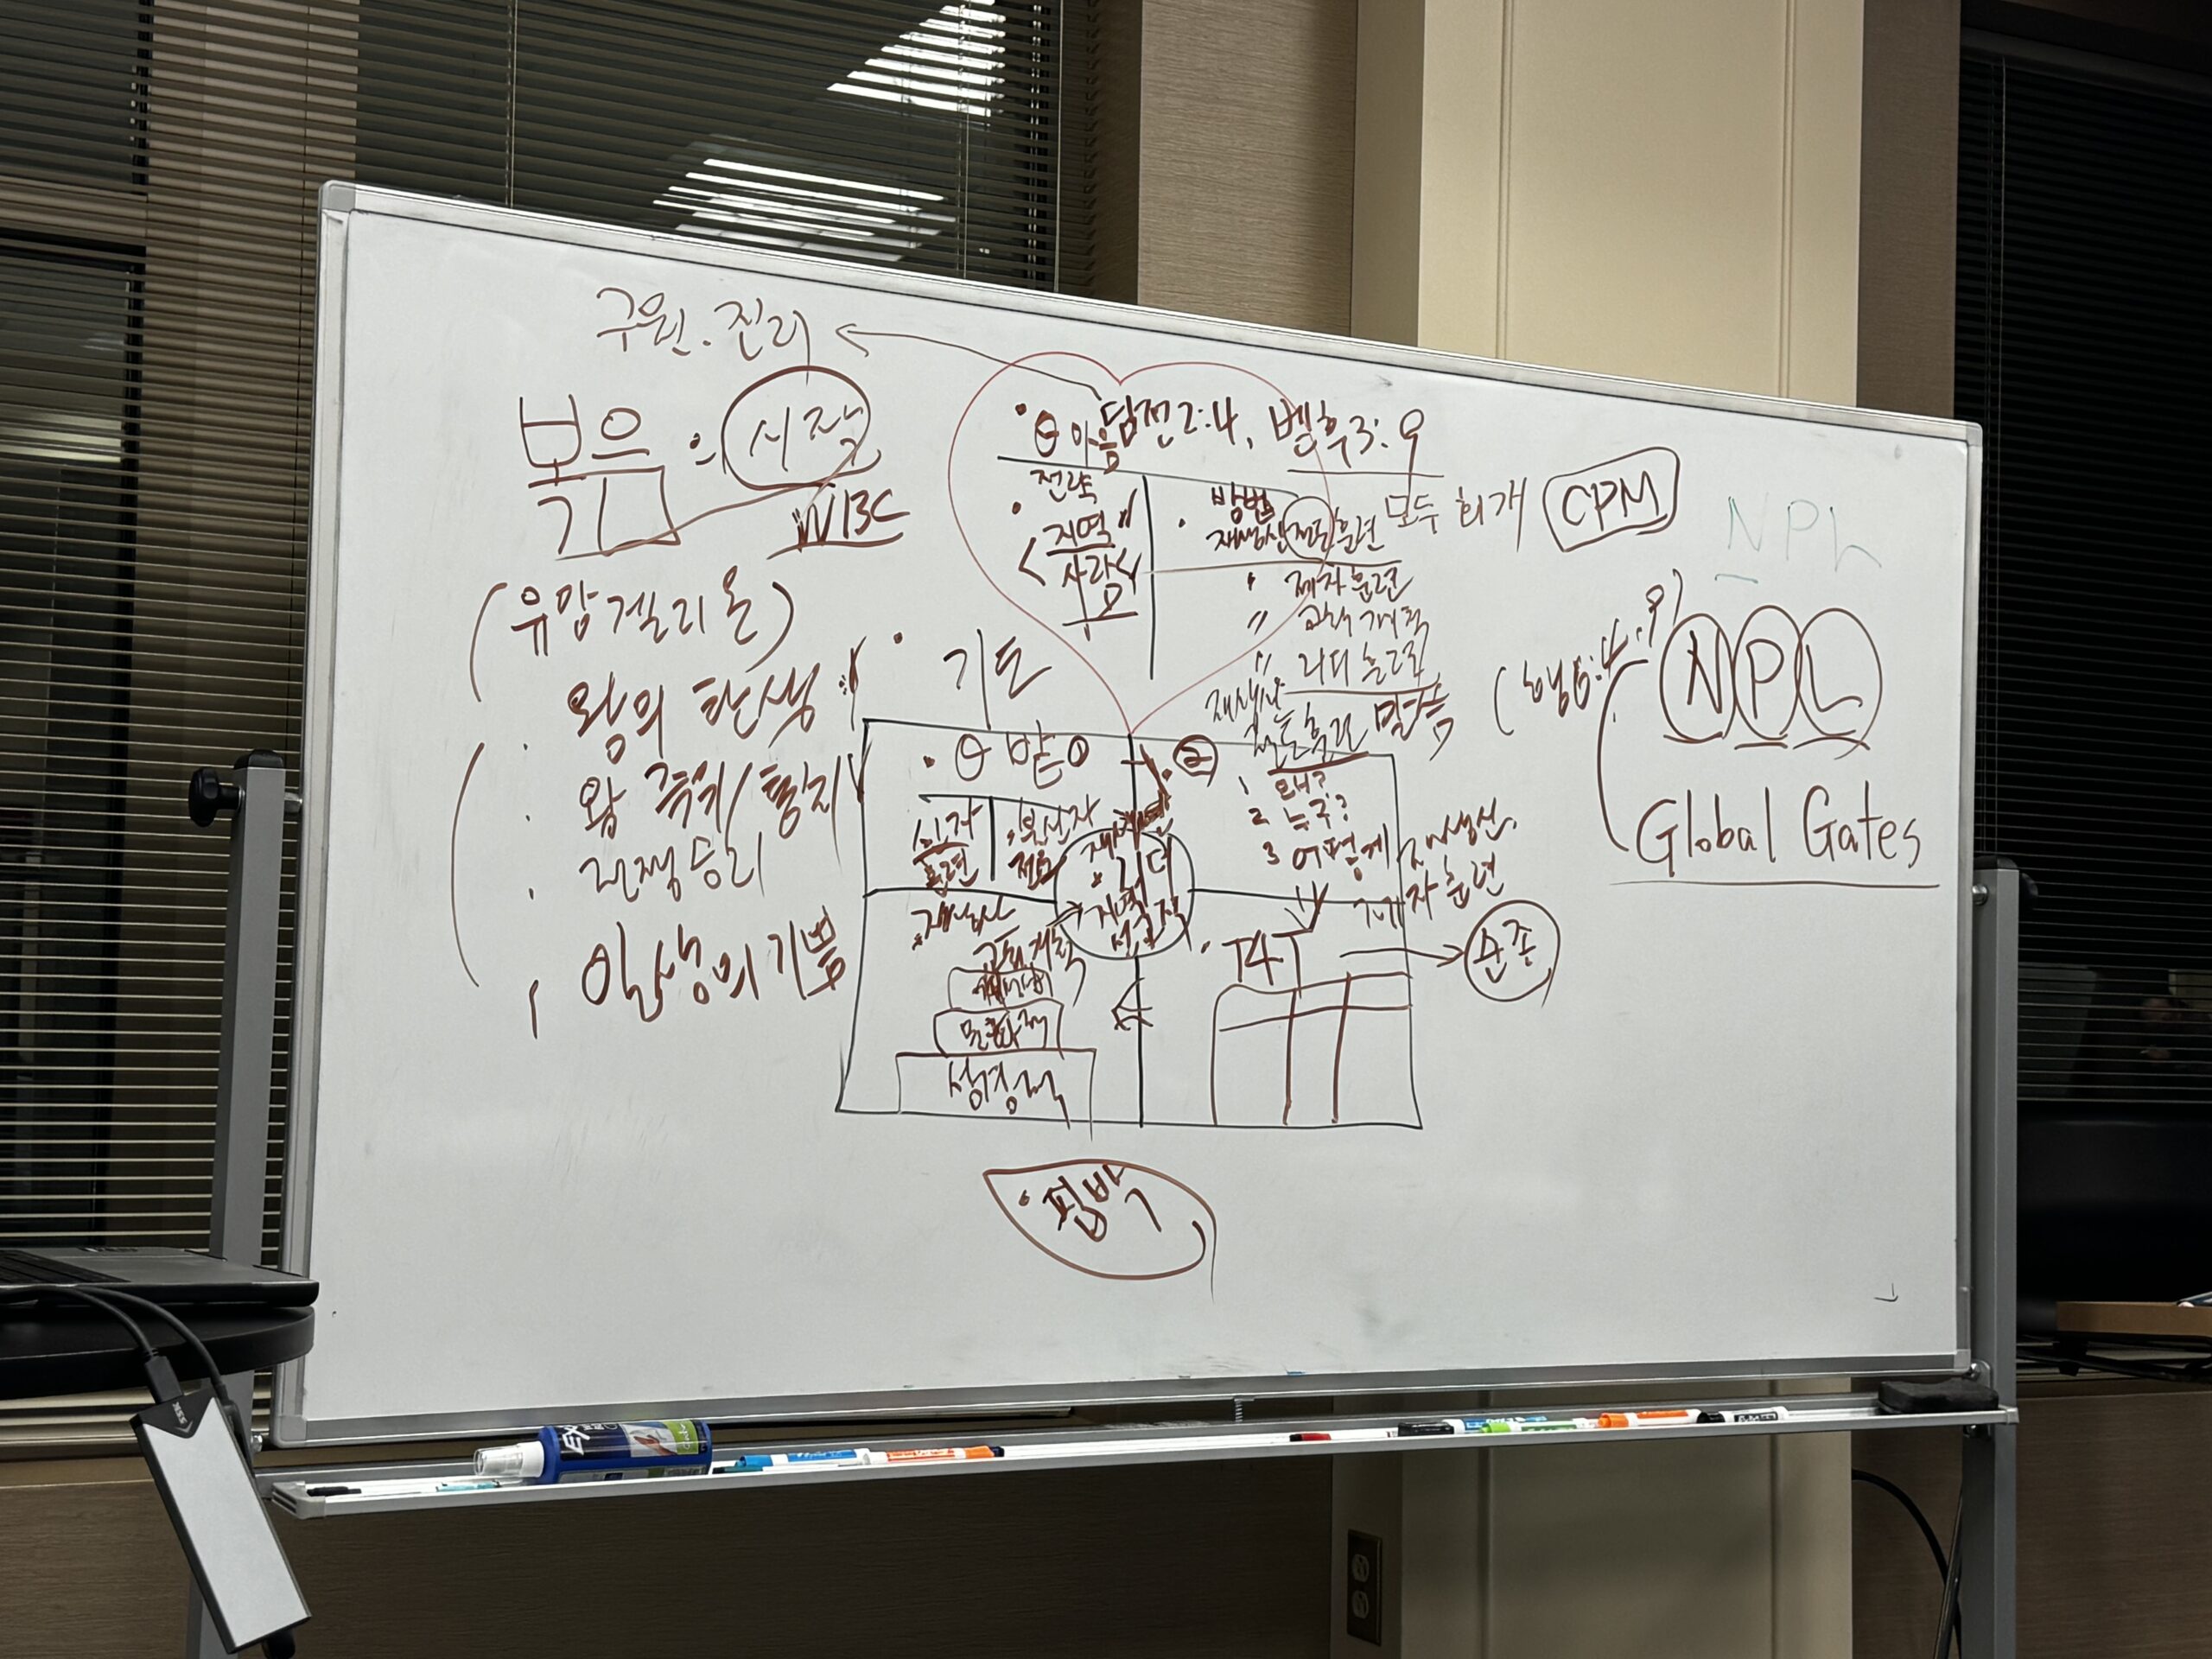 구원. 진리
복음의 시작
기
W13C
(유앙겔리온)
왕의 탄생
왕 즉위/통치
전쟁승리
인생의 기쁨
마음 딤전2:4, 벧후3:9
전략
지역
사람
방법
재생산 전도훈련 모두 회개 CPM
" 제자훈련
" 교회개척
" 리더훈련
NPL
(행6:4, 9)
NPL
Global Gates
기도
받
②
재생산
전도훈련 말씀
신자
훈련
불신자
전도
1. 왜?
2. 누구?
3 어떻게
재생산
제자훈련
리더
지역
재생산
교회개척
성장
T4T
순종
핍박